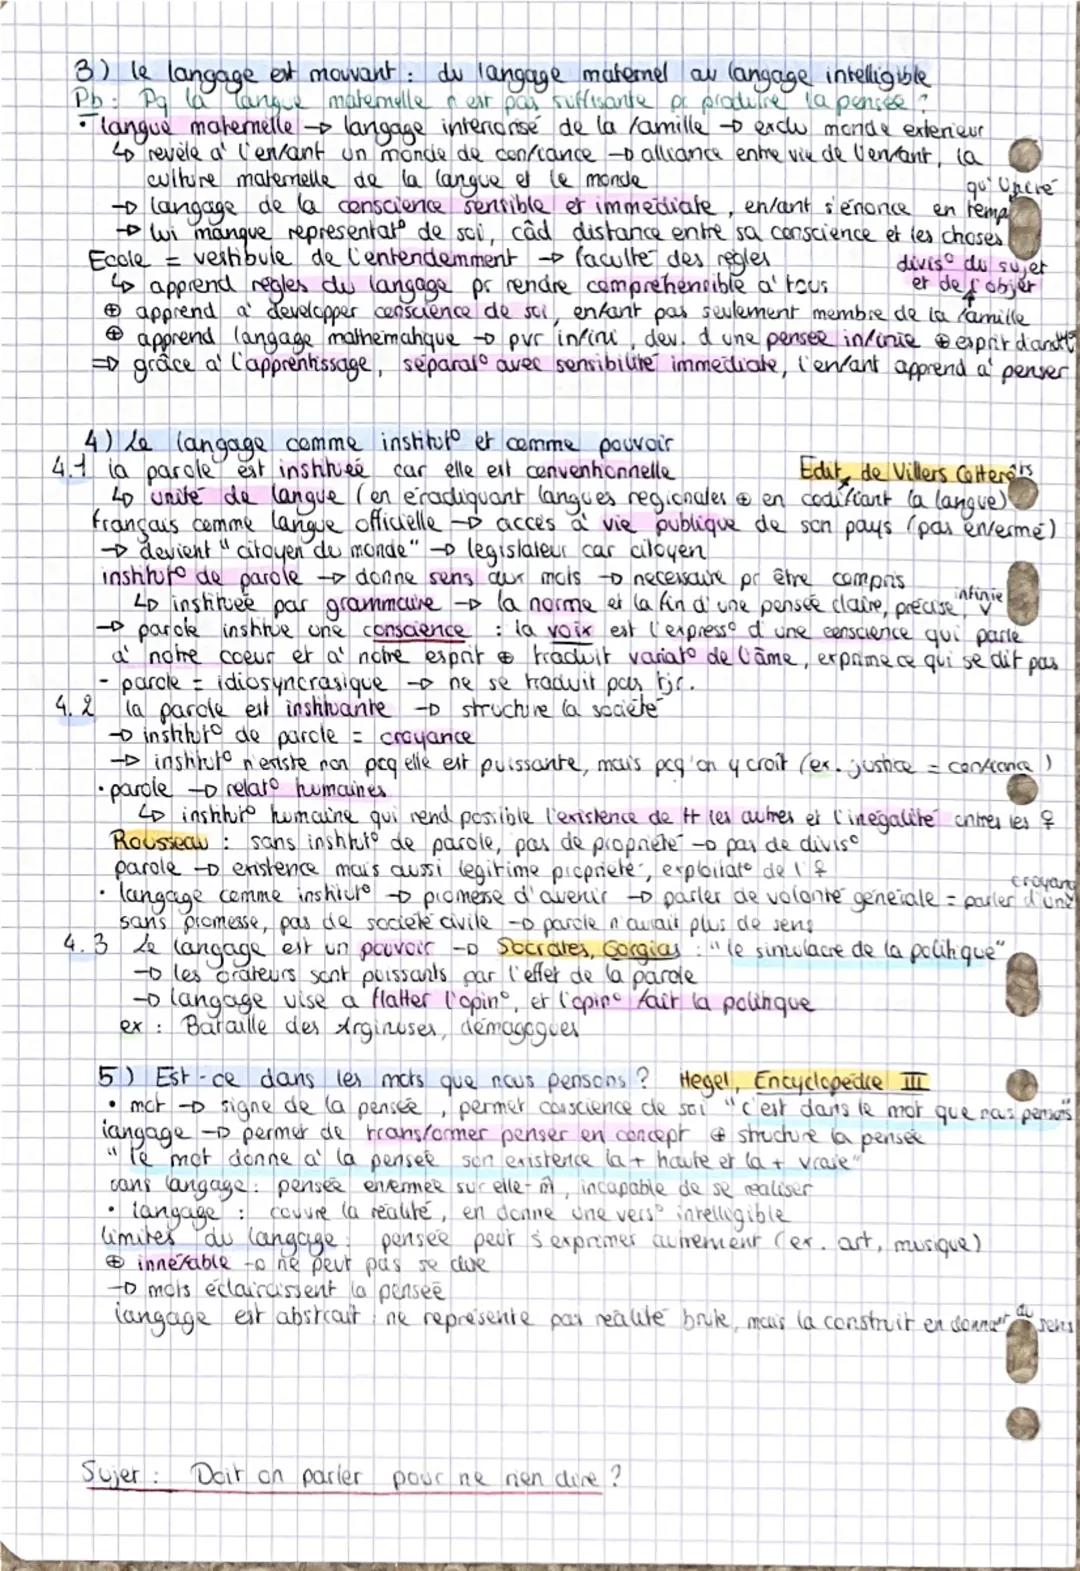 3) le langage est mouvant : du langage maternel au langage intelligible
Pb : Pq la langue maternelle n'est pas suffisante pr produire la pensée ?
• langue maternelle → langage intériorisé de la famille → exclu monde extérieur
↳ révèle à l'enfant un monde de confiance → alliance entre vie de l'enfant, la
culture maternelle de la langue et le monde
→ langage de la conscience sensible et immédiate, enfant s'énonce en temps qu'
→ lui manque représentat° de soi, càd distance entre sa conscience et les choses
divis° du sujet
et de l'objet
Ecole = vestibule de l'entendemment → faculté des règles
↳ apprend règles du langage pr rendre compréhensible à tous
⊕ apprend à développer conscience de soi, enfant pas seulement membre de la famille
⊕ apprend langage mathématique → pur infini, dev. d'une pensée infinie ⊕ esprit
⇒ grâce à l'apprentissage, séparat° avec sensibilité immédiate, l'enfant apprend à penser
4) Le langage comme institut° et comme pouvoir
4.1 la parole est instituée car elle est conventionnelle
Edit de Villers Cotterêts
↳ unité de langue (en éradiquant langues régionales ⊕ en codifiant la langue)
français comme langue officielle → accès à vie publique de son pays (pas enfermé)
→ devient "citoyen du monde" → législateur car citoyen
institut° de parole → donne sens aux mots → nécessaire pr être compris
↳ instituée par grammaire → la norme et la fin d'une pensée claire, précise, infinie
→ parole institue une conscience : la voix est l'express° d'une conscience qui parle
à notre coeur et à notre esprit ⊕ traduit variat° de l'âme, exprime ce qui se dit pas
- parole = idiosyncrasique → ne se traduit pas tjr.
4.2 la parole est instituante → structure la société
→ institut° de parole = croyance
→ institut° n'existe non pcq elle est puissante, mais pcq'on y croit (ex. justice = confiance)
• parole → relat° humaines
↳ institut° humaine qui rend possible l'existence de tt les autres et l'inégalité entres les ♀
Rousseau : sans institut° de parole, pas de propriété → pas de divis°
parole → existence mais aussi légitime propriété, exploitat° de l'♀
• langage comme institut° → promesse d'avenir → parler de volonté générale = parler d'une croyance
sans promesse, pas de société civile → parole n'aurait plus de sens
4.3 Le langage est un pouvoir → Socrates, Gorgias : "le simulacre de la politique"
→ les orateurs sont puissants par l'effet de la parole
→ langage vise à flatter l'opin°, et l'opin° fait la politique
ex : Bataille des Arginuses, démagogues
5) Est-ce dans les mots que nous pensons ? Hegel, Encyclopédie III
• mot → signe de la pensée, permet conscience de soi "c'est dans le mot que nous pensons"
langage → permet de transformer penser en concept ⊕ structure la pensée
"le mot donne à la pensée son existence la + haute et la + vraie"
sans langage : pensée enfermée sur elle-m̂, incapable de se réaliser
• langage : couvre la réalité, en donne une vers° intelligible
limites du langage : pensée peut s'exprimer autrement (ex. art, musique)
⊕ inneffable → ne peut pas se dire
→ mots éclaircissent la pensée
langage est abstrait : ne représente pas réalité brute, mais la construit en donnant du sens
Sujet : Doit on parler pour ne rien dire ?